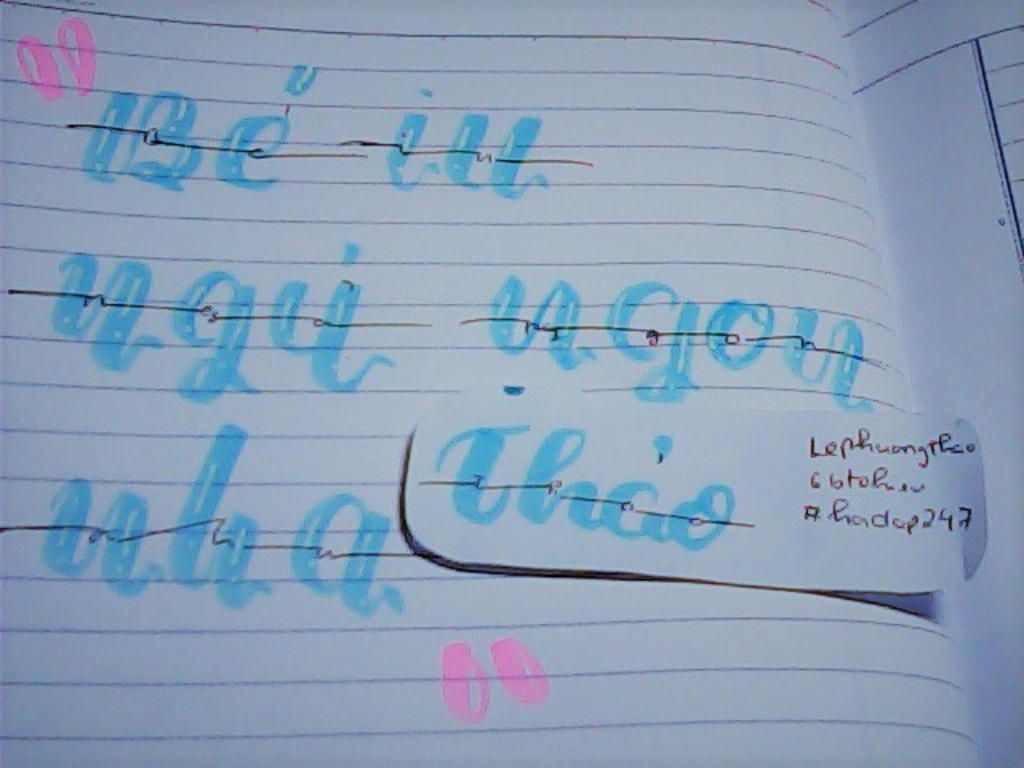 "Bé iu
ngủ ngon
nha
Thảo
LephuongThao
6btohieu
#hoidap247
"